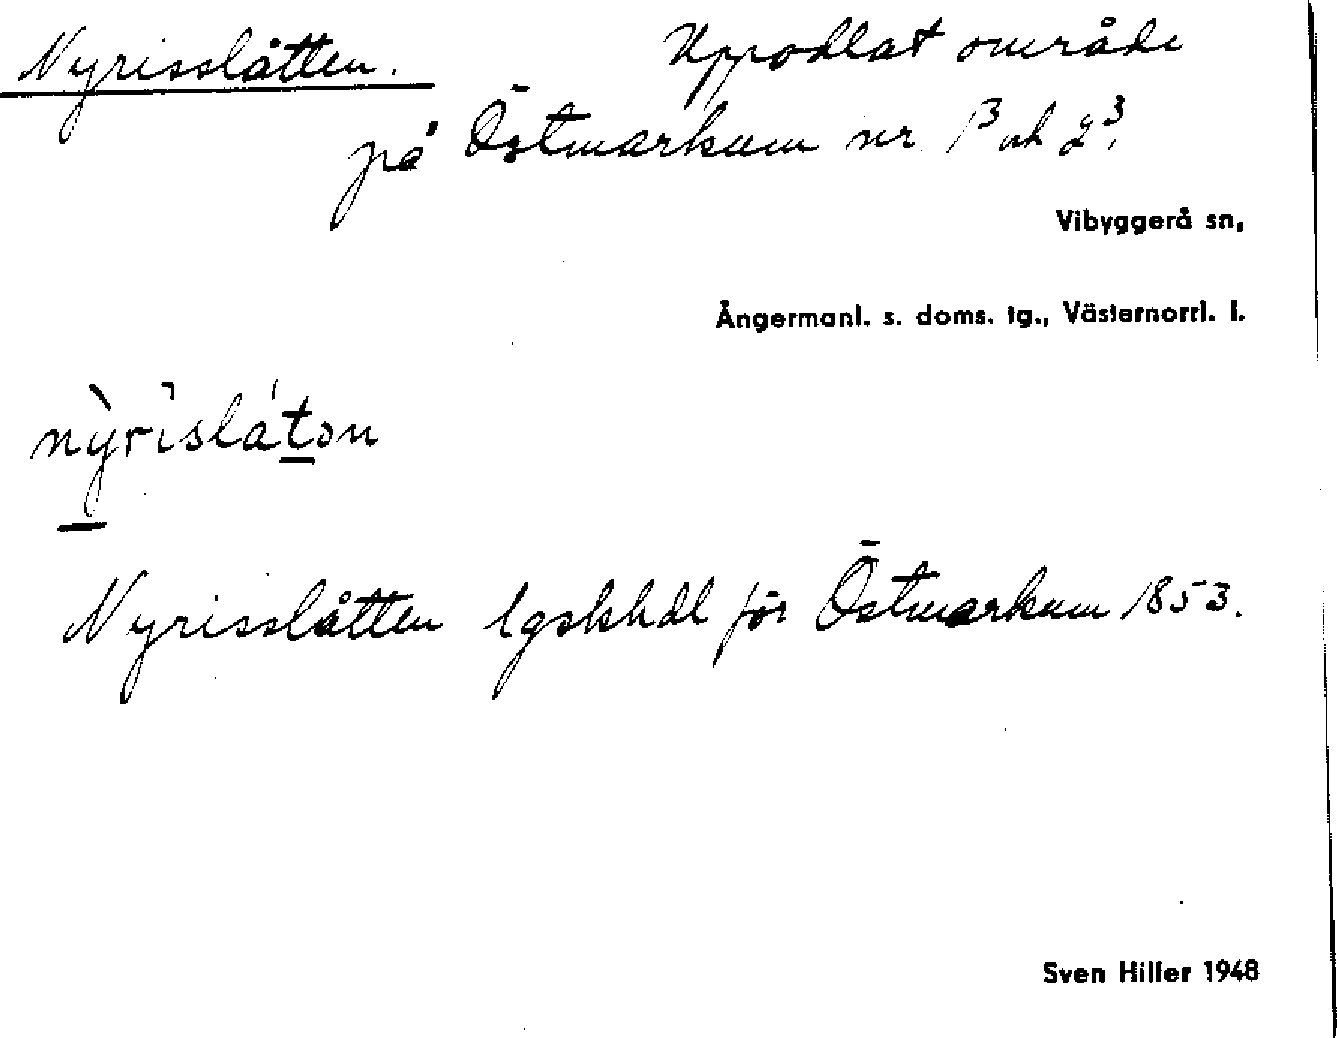 Nyrisslåtten. Uppodlat område
på Östmarkum nr 1³ och 2³,
Vibyggerå sn,
Ångermanl. s. doms. tg., Västernorrl. l.
nỳrislåton
Nyrisslåtten lgskhdl för Östmarkum 1853.
Sven Hiller 1948